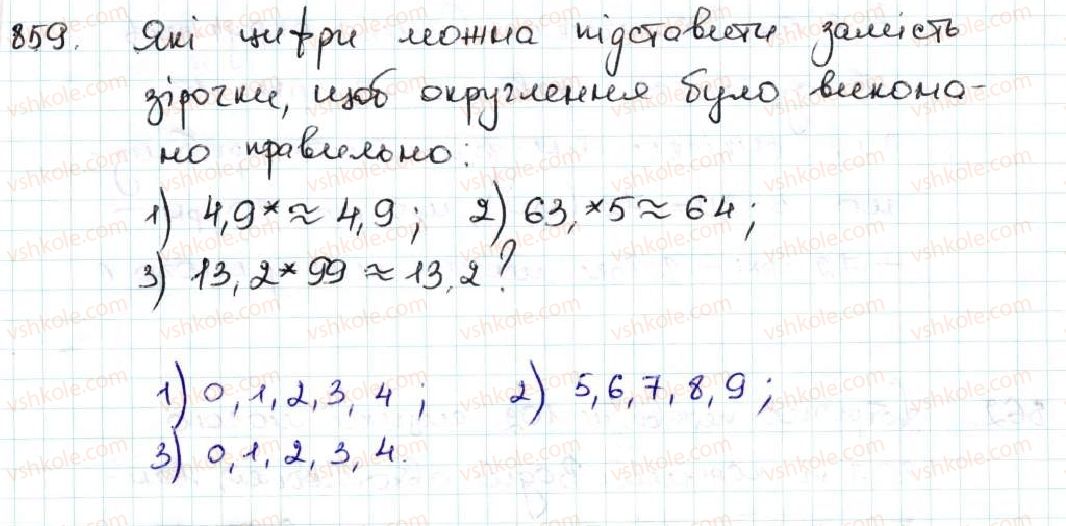 859. Які цифри можна підставити замість
зірочки, щоб округлення було викона-
но правильно:
1) 4,9* ≈ 4,9 ; 2) 63,*5 ≈ 64 ;
3) 13,2*99 ≈ 13,2 ?
1) 0, 1, 2, 3, 4 ; 2) 5, 6, 7, 8, 9 ;
3) 0, 1, 2, 3, 4.